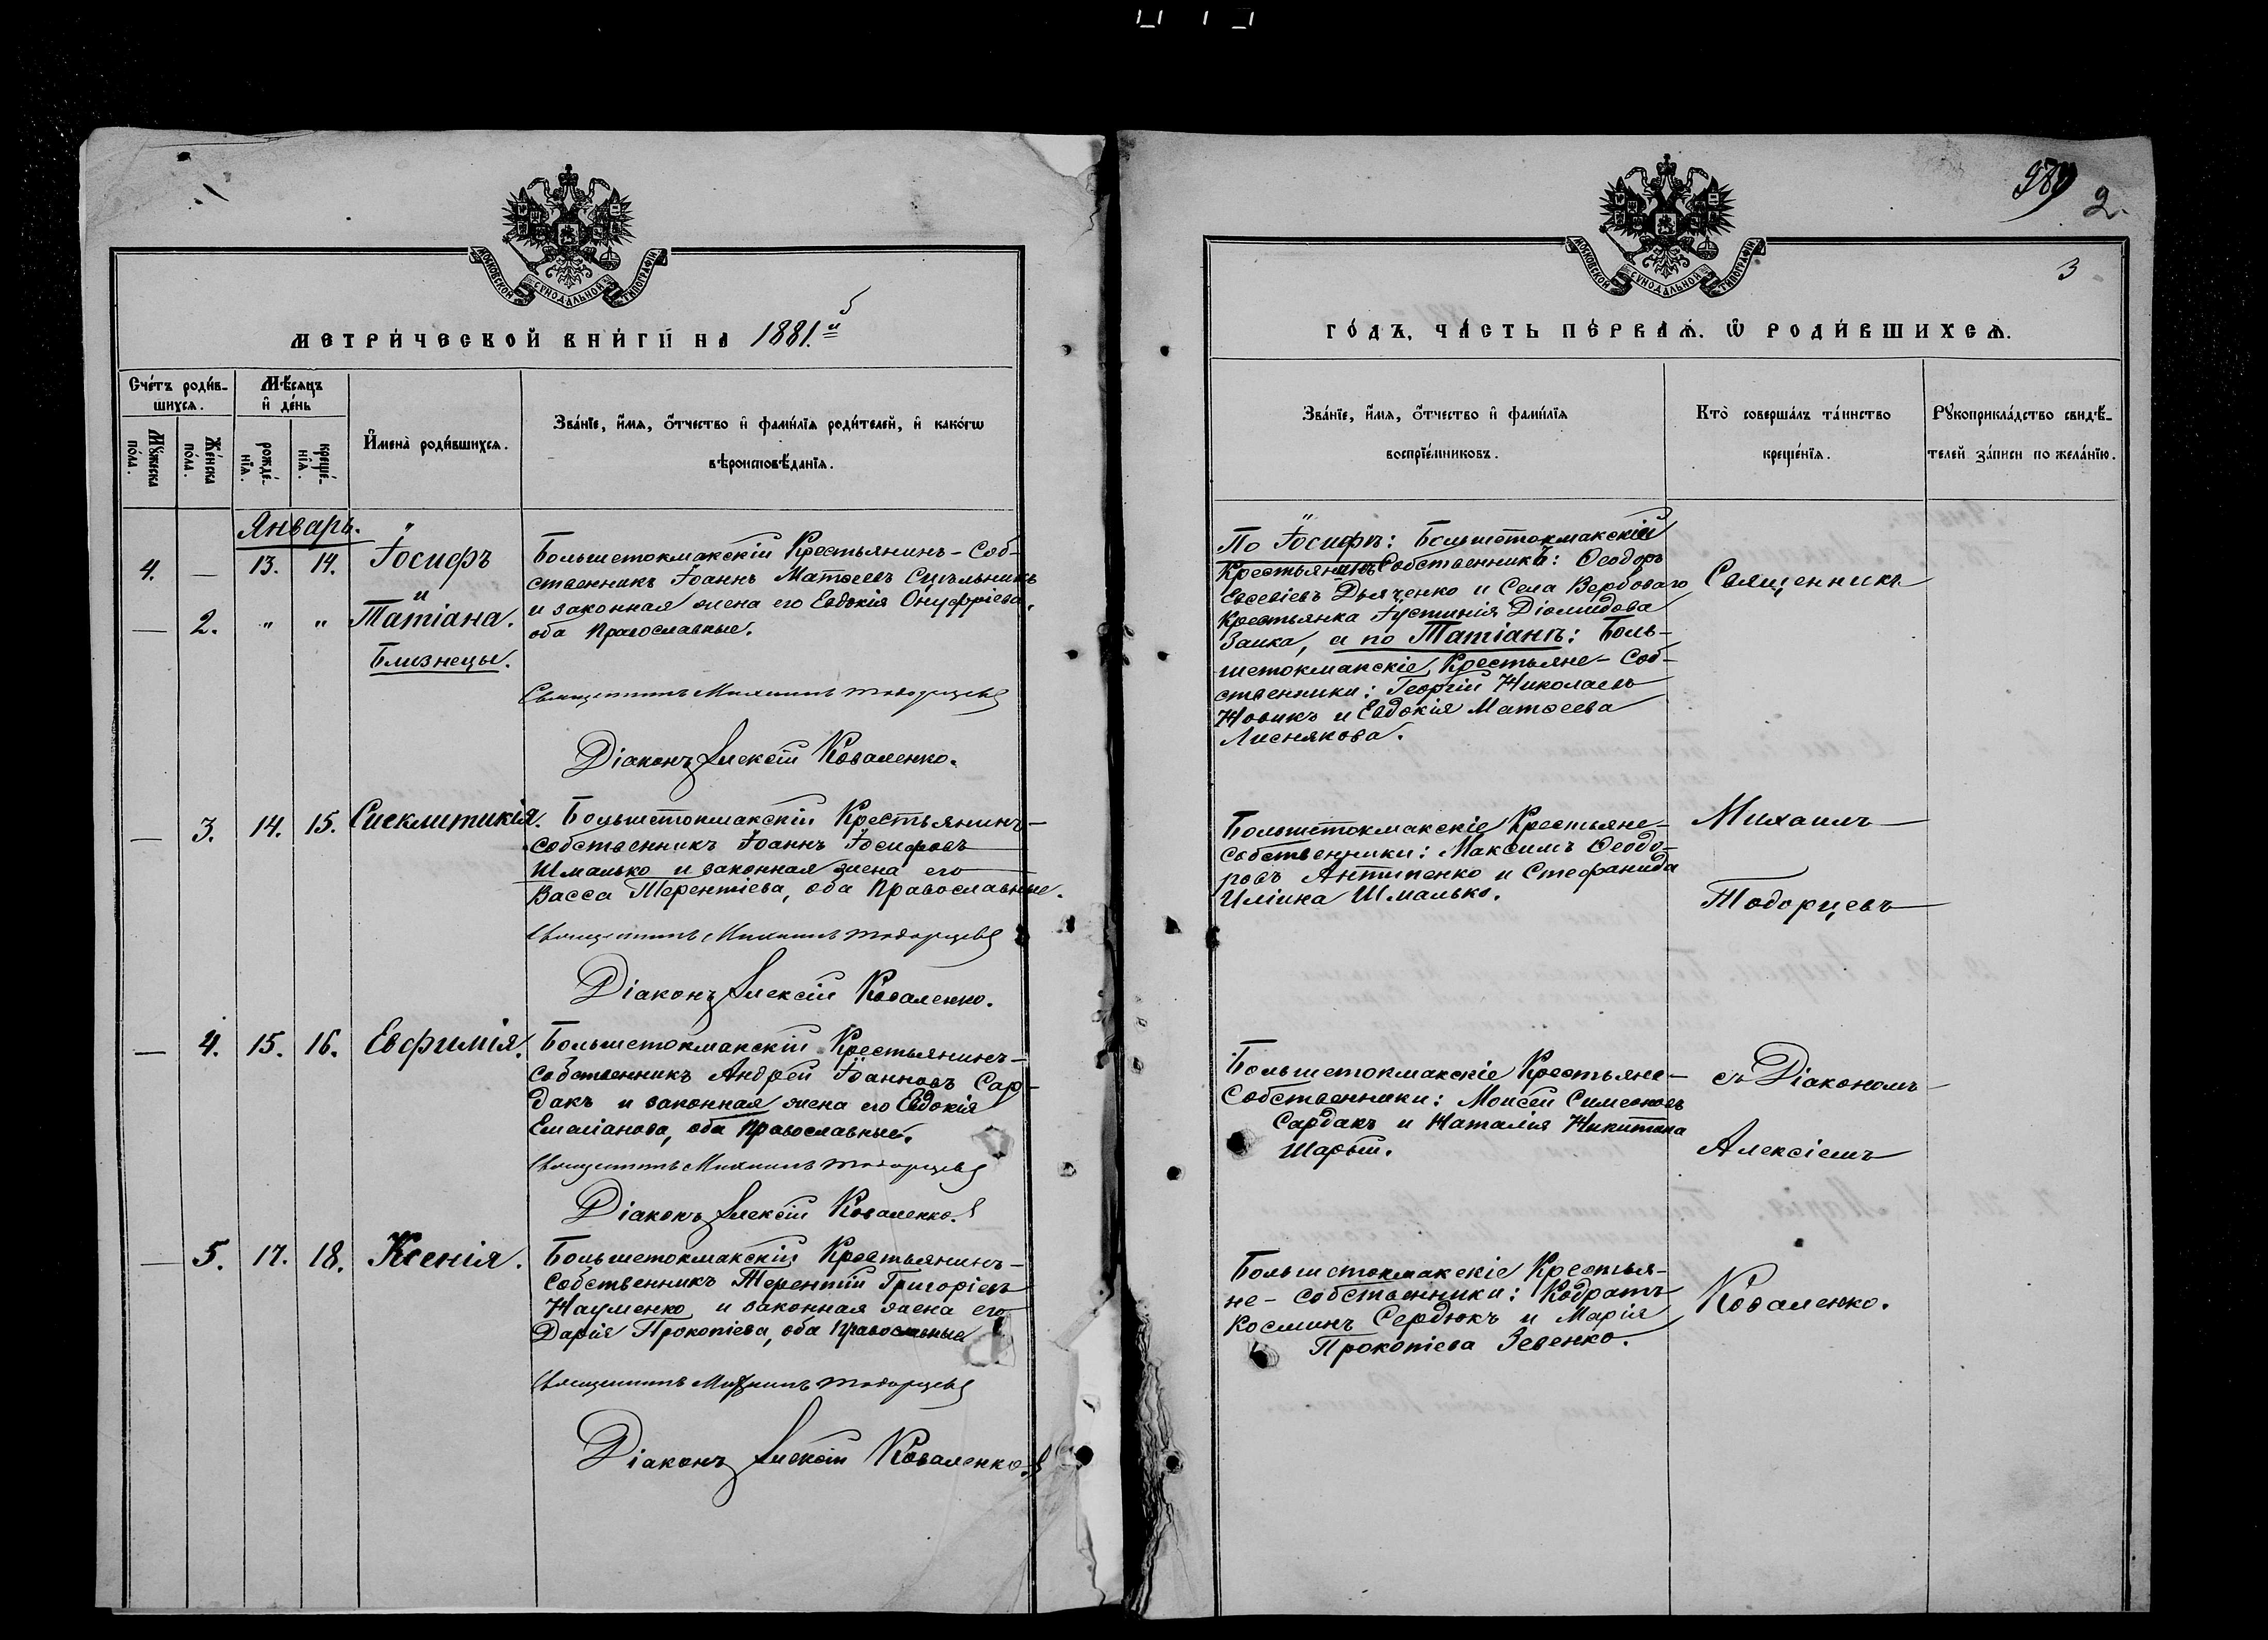 МОСКОВСКОЙ СѴНОДАЛЬНОЙ ТИПОГРАФІИ
МЕТРИ́ЧЕСКОЙ КНИ́ГИ НА 1881.й
Сче́тъ роди́в-
шихся.
Мѣ́сяцъ
и҆ де́нь
Мꙋ́жеска по́ла.
Же́нска по́ла.
рожде́-нїѧ.
креще́-нїѧ.
И҆мена̀ роди́вшихсѧ.
Зва́нїе, и҆́мѧ, ѻ҆́тчество и҆ фами́лїѧ роди́телей, и҆ како́гѡ
вѣроисповѣ́данїѧ.
Январь.
4. — 13. 14. Іосифъ
и
— 2. " " Татіана.
Близнецы.
Большетокмакскій Крестьянинъ-Соб-
ственникъ Іоаннъ Матѳеевъ
и законная жена его Евдокія Онуфріева,
оба Православные.
Священникъ Михаилъ Тодорцевъ
Діаконъ Алексій Коваленко.
— 3. 14. 15. Сигклитикія.
Большетокмакскій Крестьянинъ-
собственникъ Іоаннъ Іосифовъ
Шмалько и законная жена его
Васса Терентіева, оба Православные.
Священникъ Михаилъ Тодорцевъ
Діаконъ Алексій Коваленко.
— 4. 15. 16. Евфимія.
Большетокмакскій Крестьянинъ-
Собственникъ Андрей Іоанновъ Сар-
дакъ и законная жена его Евдокія
Емеліанова, оба Православные.
Священникъ Михаилъ Тодорцевъ
Діаконъ Алексій Коваленко.
— 5. 17. 18. Ксенія.
Большетокмакскій Крестьянинъ-
Собственникъ Терентій Григоріевъ
Науменко и законная жена его
Дарія Прокопіева, оба Православные
Священникъ Михаилъ Тодорцевъ
Діаконъ Алексій Коваленко.
2.
3
МОСКОВСКОЙ СѴНОДАЛЬНОЙ ТИПОГРАФІИ
ГО́ДЪ, ЧА́СТЬ ПЕ́РВАѦ, Ѽ РОДИ́ВШИХСѦ.
Зва́нїе, и҆́мѧ, ѻ҆́тчество и҆ фами́лїѧ
воспрїе́мниковъ.
Кто̀ соверша́лъ та́инство
креще́нїѧ.
Рꙋкоприкла́дство свидѣ́-
телей за́писи по жела́нїю.
По Іосифѣ: Большетокмакскій
Крестьянинъ Собственникъ: Ѳеодоръ
Евсевіевъ Дьяченко и Села Вербоваго
Крестьянка Іустинія Діомидова
Заика, а по Татіанѣ: Боль-
шетокмакскіе Крестьяне-Соб-
ственники: Георгій Николаевъ
Новикъ и Евдокія Матѳеева
Лиснякова.
Большетокмакскіе Крестьяне-
Собственники: Максимъ Ѳеодо-
ровъ Антипенко и Стефанида
Иліина Шмалько.
Большетокмакскіе Крестьяне-
Собственники: Моисей Симеоновъ
Сардакъ и Наталія Никитина
Шарый.
Большетокмакскіе Крестья-
не-Собственники: Кодратъ
Косминъ Сердюкъ и Марія
Прокопіева Зевенко.
Священникъ
Михаилъ
Тодорцевъ
съ Діакономъ
Алексіемъ
Коваленко.